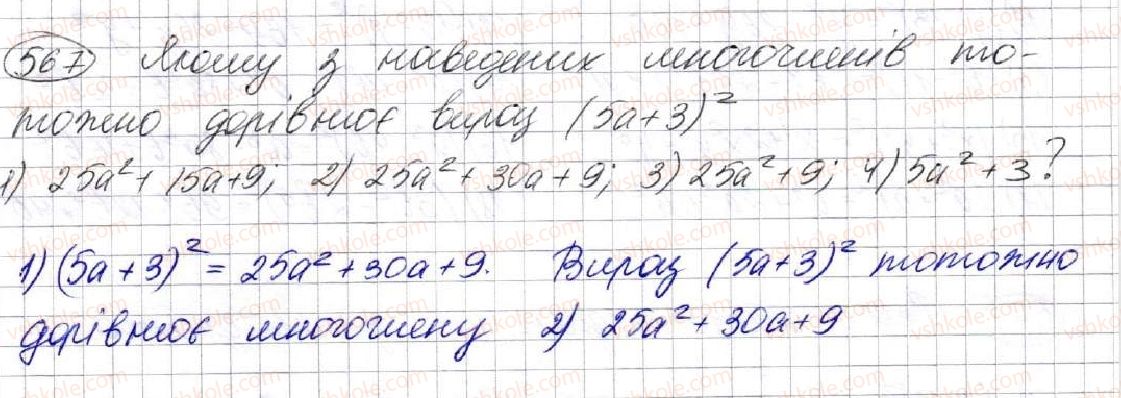 567 Якому з наведених многочленів то-
тожно дорівнює вираз (5a+3)²
1) 25a²+15a+9; 2) 25a²+30a+9; 3) 25a²+9; 4) 5a²+3?
1) (5a+3)²=25a²+30a+9. Вираз (5a+3)² тотожно
дорівнює многочлену 2) 25a²+30a+9